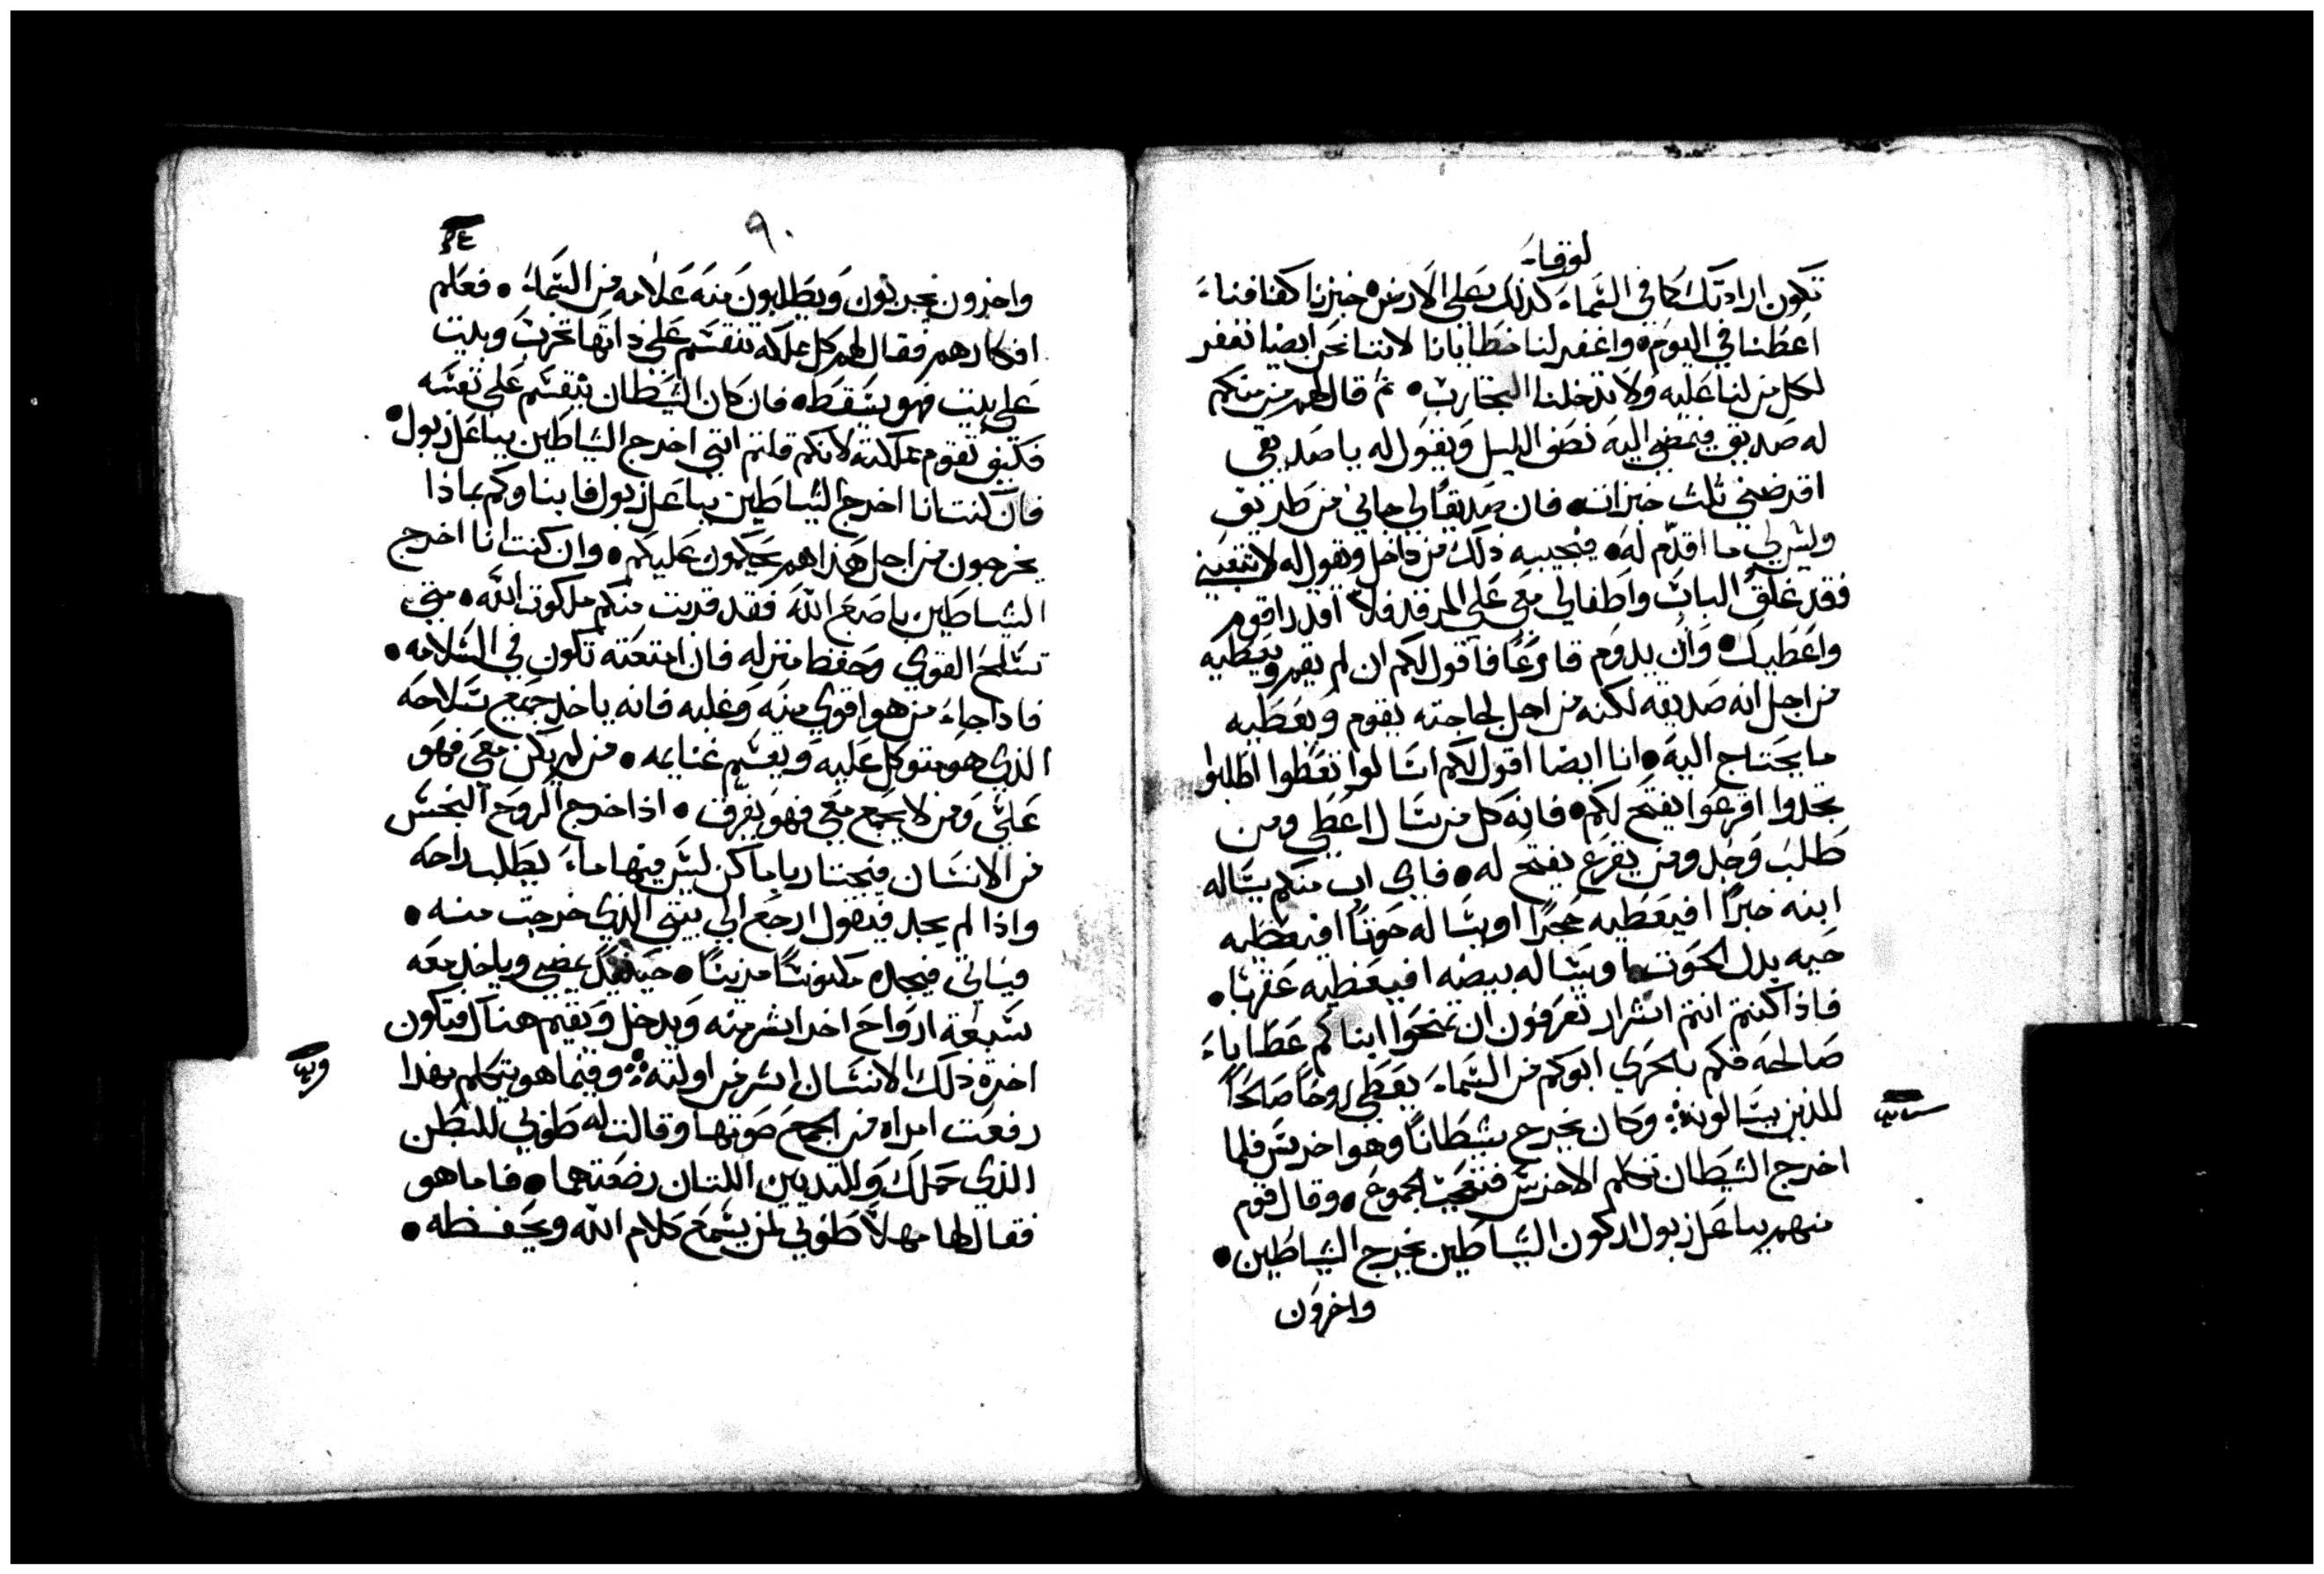 لوقا
تكون ارادتك كما في السماء كذلك على الارض خبزنا كفافنا
اعطنا في اليوم واغفر لنا خطايانا لاننا نحن ايضا نغفر
لكل من لنا عليه ولا تدخلنا التجارب ثم قال لهم من منكم
له صديق فيمضي اليه نصف الليل ويقول له يا صديقي
اقرضني ثلث خبزات فان صديقا لي جاني من طريق
وليس لي ما اقدم له فيجيبه ذلك من داخل ويقول له لا تتعبني
فقد غلق الباب واطفالي معي على المرقد فلا اقدر اقوم
واعطيك وان يدوم قارعا فاقول لكم ان لم يقم ويعطيه
من اجل انه صديقه لكنه من اجل لجاجته يقوم ويعطيه
ما يحتاج اليه انا ايضا اقول لكم اسالوا تعطوا اطلبوا
تجدوا اقرعوا يفتح لكم فانه كل من يسال اعطي ومن
طلب وجد ومن يقرع يفتح له فاي اب منكم يساله
ابنه خبزا افيعطيه حجرا او يساله حوتا افيعطيه
حيه بدل الحوت او يساله بيضه افيعطيه عقربا
فاذا كنتم انتم اشرار تعرفون ان تمنحوا ابناكم عطايا
صالحه فكم بالحري ابوكم من السماء يعطي روحا صالحا
للذين يسالونه وكان يخرج شيطانا وهو اخرس فلما
اخرج الشيطان تكلم الاخرس فتعجب الجموع وقال قوم
منهم بباعل زبول اركون الشياطين يخرج الشياطين
واخرون
٩٠
واخرون يجربون ويطلبون منه علامه من السماء فعلم
افكارهم فقال لهم كل مملكه تنقسم على ذاتها تخرب وبيت
على بيت فهو يسقط فان كان الشيطان ينقسم على نفسه
فكيف تقوم مملكته لانكم قلتم انني اخرج الشياطين بباعل زبول
فان كنت انا اخرج الشياطين بباعل زبول فابناوكم بماذا
يخرجون من اجل هذا هم يحكمون عليكم وان كنت انا اخرج
الشياطين باصبع الله فقد قربت منكم ملكوت الله متى
تسلح القوي وحفظ منزله فان امتعته تكون في السلامه
فاذا جاء من هو اقوى منه وغلبه فانه ياخذ جميع سلاحه
الذي هو متوكل عليه ويقسم غنايمه من لم يكن معي فهو
علي ومن لا يجمع معي فهو يفرق اذا اخرج الروح النجس
من الانسان فيجتاز باماكن ليس فيها ماء يطلب راحه
واذا لم يجد فيقول ارجع الى بيتي الذي خرجت منه
فياتي فيجده مكنوسا مزينا حينيد يمضي وياخذ معه
سبعة ارواح اخر اشر منه ويدخل ويقيم هناك فيكون
اخرة ذلك الانسان اشر من اولته وفيما هو يتكلم بهذا
رفعت امراه من الجمع صوتها وقالت له طوبى للبطن
الذي حملك وللثديين اللتان رضعتهما فاما هو
فقال لها مهلا طوبى لمن يسمع كلام الله ويحفظه